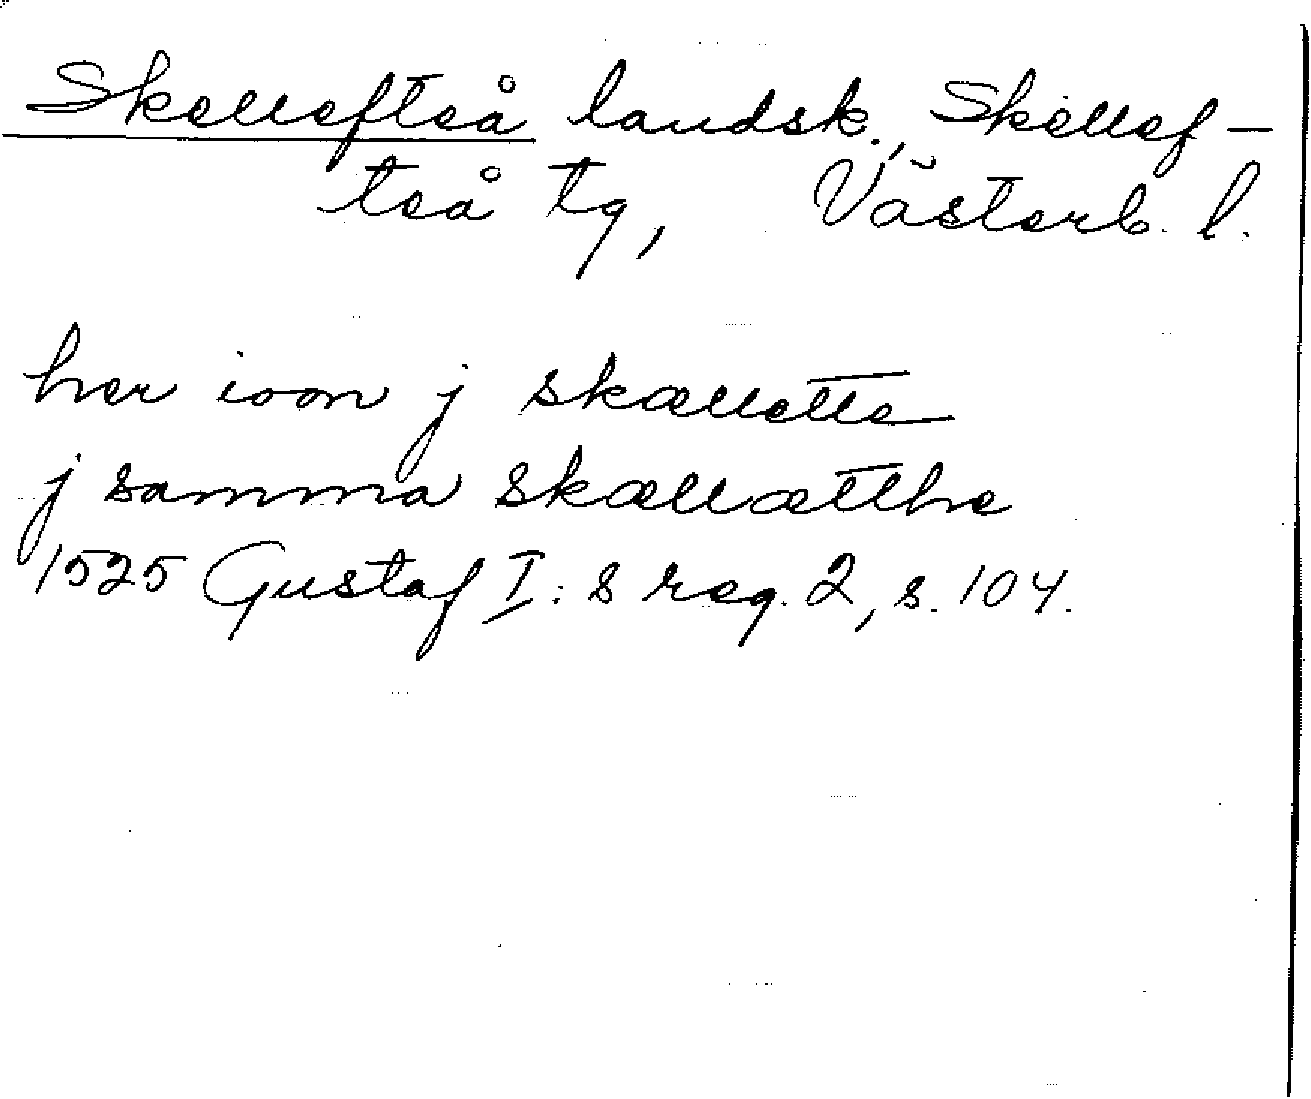 Skellefteå landsk., Skellef-
teå tg, Västerb. l.
her ioon j skællette
j samma skællætthe
1525 Gustaf I:s reg. 2, s. 104.